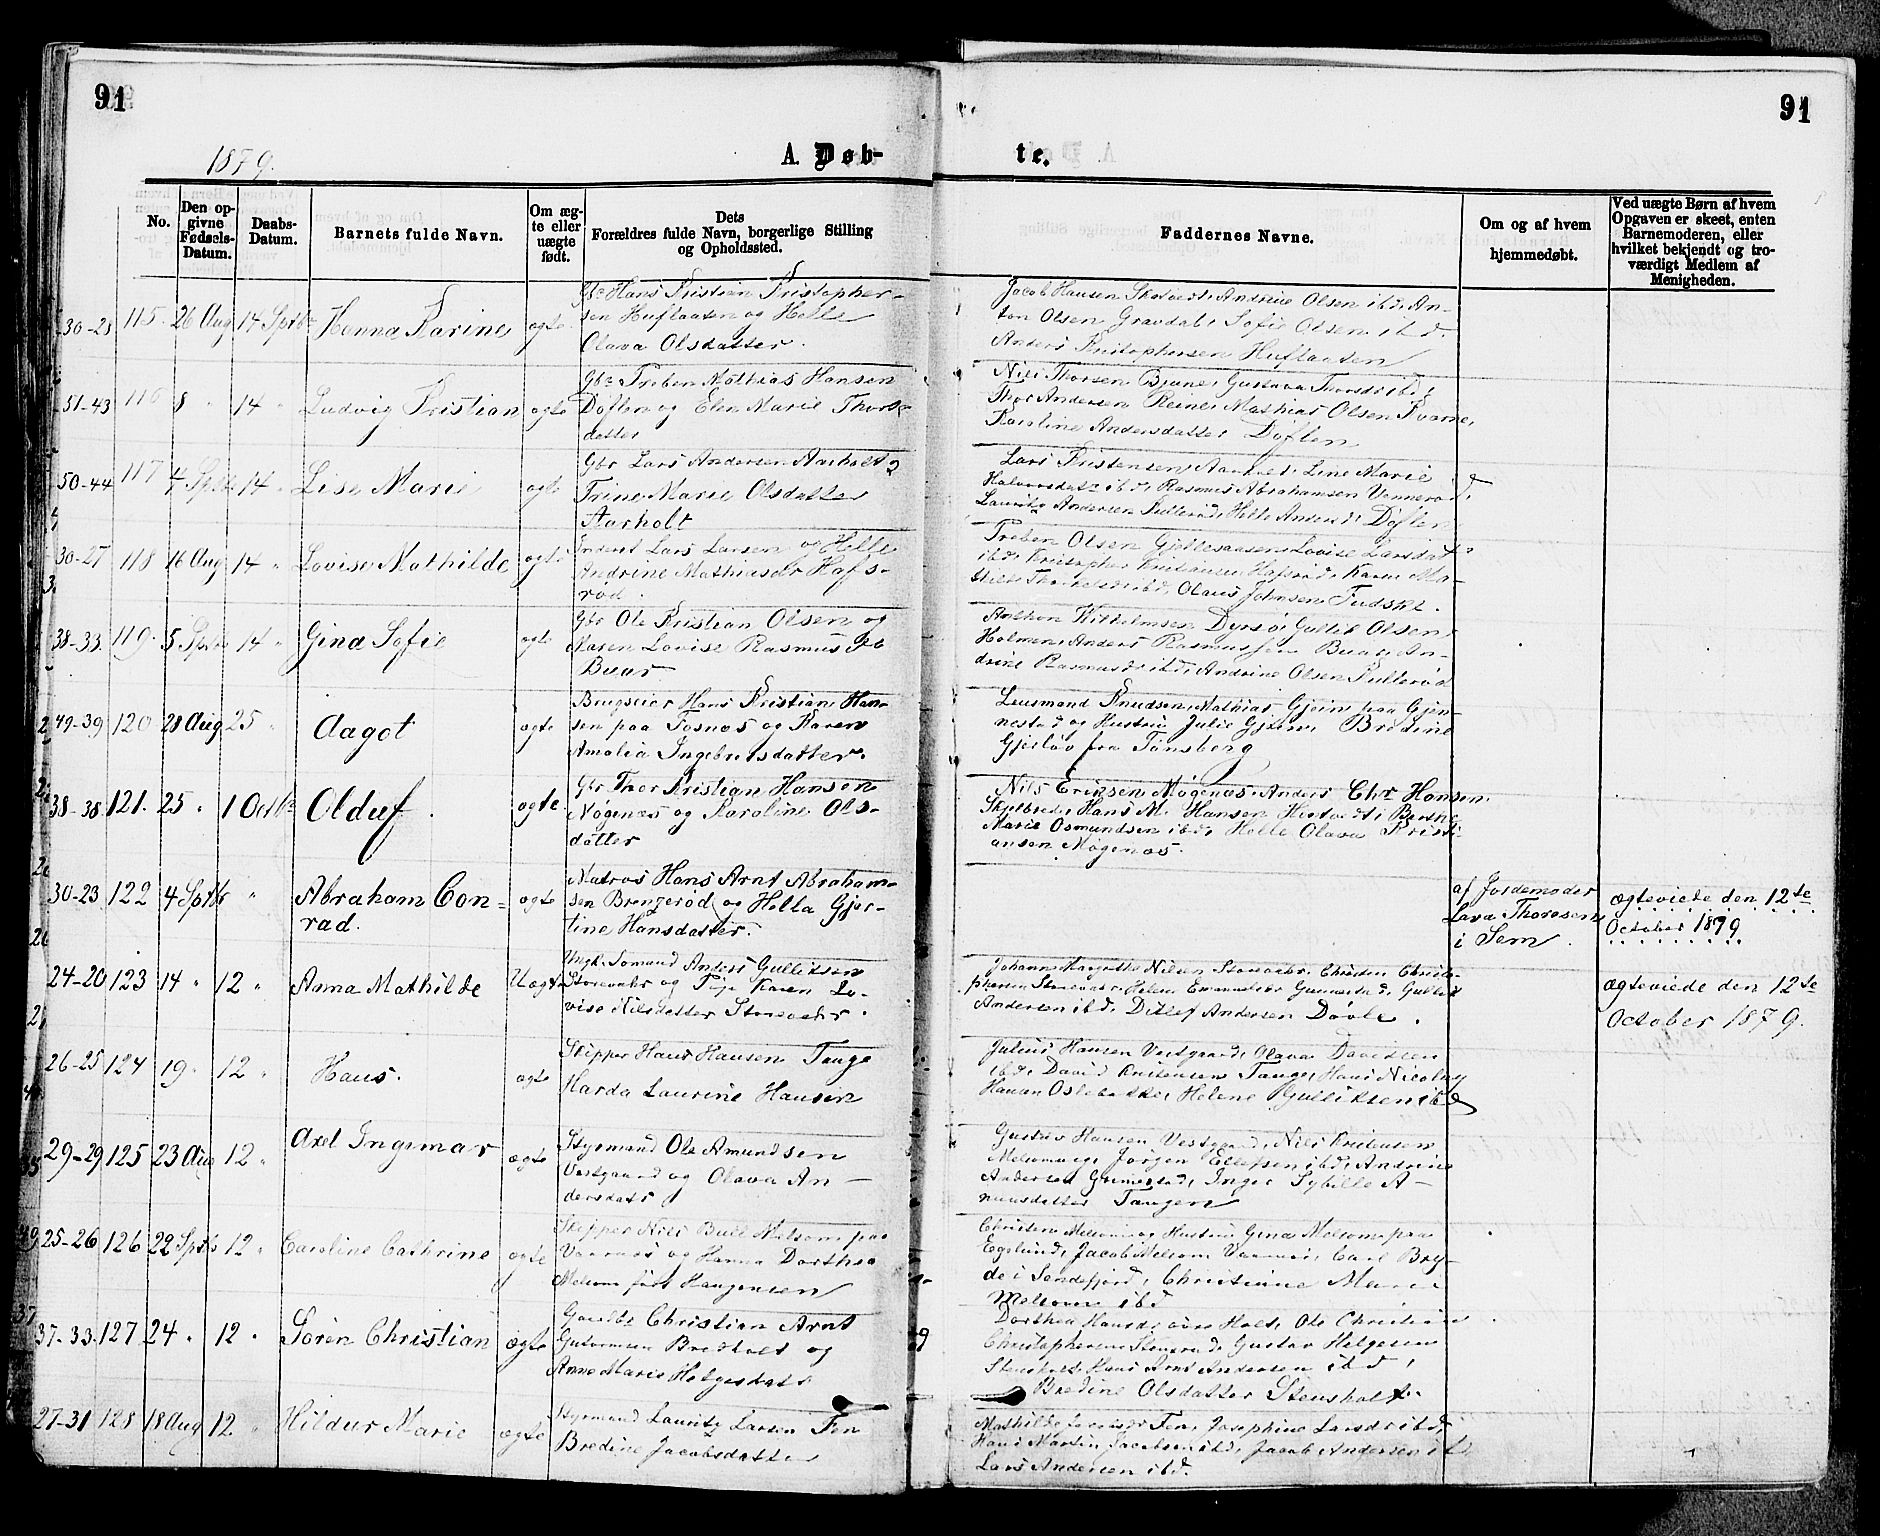 91
91
1879.
A. Døb-
te.
No.
Den op-
givne
Fødsels-
Datum.
Daabs-
Datum.
Barnets fulde Navn.
Om æg-
te eller
uægte
født.
Dets
Forældres fulde Navn, borgerlige Stilling
og Opholdssted.
Faddernes Navne.
Om og af hvem
hjemmedøbt.
Ved uægte Børn af hvem
Opgaven er skeet, enten
Barnemoderen, eller
hvilket bekjendt og tro-
værdigt Medlem af
Menigheden.
30-28 115. 26 Aug 14 Sptbr Hanna Karine ægte
Gbr Hans Kristian Kristopher-
sen Huflaaten og Helle
Olava Olsdatter.
Jacob Hansen Andrine Olsen ibd, An-
ton Olsen Gravdal, Sofie Olsen ibd.
Anders Kristophersen Huflaaten
31-43 116 8 " 14 " Ludvig Kristian ægte
Gbr Preben Mathias Hansen
Døflen og Elen Marie Thors-
datter
Nils Thorsen Bjune, Gustava Thorsdr ibd,
Thor Andersen Reine, Mathias Olsen Kvarne,
Karoline Andersdatter Døflen
50-44 117 4 Sptbr 14 " Lise Marie ægte
Gbr Lars Andersen Aarholt &
Trine Marie Olsdatter
Aarholt
Lars Kristensen Aarholt, Line Marie
ibd, Rasmus Abrahamsen Vennerød,
Laurits Andersen Pullerød, Helle Andersd, Døflen
30-27 118 16 Aug 14 " Lovise Mathilde ægte
Inderst Lars Larsen og Helle
Andrine Mathiasdr Hafs-
rød.
Preben Olsen Gjellesaasen, Lovise Larsdat
ibd, Kristopher Kristiansen Hafsrød, Karen Ma-
ibd, Olaus Johnsen
38-33 119. 5 Sptbr 14 " Gina Sofie ægte
Gbr Ole Kristian Olsen og
Maren Lovise Rasmusdtr
Buar
Anthon Wilhelmsen Dyrsø, Gullik Olsen
Holmen, Anders Rasmussen Buar, An-
drine Rasmusdr ibd, Andrine Olsen Pullerød
49-39 120 28 Aug 25 " Aagot ægte
Brugseier Hans Kristian Han-
sen paa og Karen
Amalia Ingebretsdatter.
Knudsen, Mathias Gjein paa Gjen-
nestad og Hustru Julie Gjein, Bredine
Gjerløv fra Tønsberg
38-38 121. 25 " 1 Octbr Olduf ægte
Gbr Thor Kristian Hansen
Møgenæs og Karoline Ols-
datter
Nils Ericsen Møgenæs, Anders Chr Hansen
Skjelbred, Hans M. Hansen Hestvedt, Berthe
Marie Osmundsen ibd, Helle Olava Kristi-
ansen Møgenæs.
30-23 122 4 Sptbr " Abraham Con-
rad. ægte
Matros Hans Arnt Abraham-
sen Brengerød og Hella Gjer-
tine Hansdatter.
af Jordemoder
Lava Thoresen
i Sem.
ægteviede den 12te
October 1879
24-20 123 14 " 12 " Anna Mathilde Uægte
Ungk. Sømand Anders Gulliksen
Storevahr og Pige Karen Lo-
vise Nilsdatter Storevahr.
Johanne Margrethe Nilsen Storevahr, Christen Christo-
phersen Storevahr, Helene Gunnestad, Gullik
Andersen ibd, Ditlef Andersen Døvle.
ægteviede den 12te
October 1879.
26-25 124 19 " 12 " Hans. ægte
Skipper Hans Hansen Tange
Harda Laurine Hansen
Julius Hansen Vestgaard, Olava Davidsen
ibd, David Kristensen Tange, Hans Nicolay
Hansen Oslebakke, Helene Gulliksen ibd
29-29 125 23 Aug 12 " Axel Ingemar ægte
Styrmand Ole Amundsen
Vestgaard og Olava An-
dersdatr
Gustav Hansen Vestgaard, Nils Kristensen
Melsomvig, Jørgen Ellefsen ibd, Andrine
Andersen Gunnestad, Inger Sybille A-
muusdatter Tangen
25-26 126 22 Sptbr 12 " Caroline Cathrine ægte
Skipper Nils Bull Melsom paa
Vaarnæs og Hanna Dorthea
Melsom født Haugensen
Christen Melsom og Hustru Gina Melsom paa
Egelund, Jacob Melsom Vaarnæs, Carl Bry-
de i Sandefjord, Christiane Marie
Melsom ibd
37-33 127 24 " 12 " Sørèn Christian ægte
Gaardbr Christian Arnt
Guttormsen Bredholt og
Anne Marie Helgesdatr
Dorthea Hansdr Holt, Ole Christian
Christophersen Stensrud, Gustav Helgesen
Stensholt, Hans Arnt Andersen ibd,
Bredine Olsdatter Stensholt.
27-31 128 18 Aug 12 " Hildur Marie ægte
Styrmand Lauritz Larsen Fen
Bredine Jacobsdatter
Mathilde Fen, Josephine Larsdr ibd,
Hans Martin Jacobsen ibd, Jacob Andersen ibd,
Lars Andersen ibd.